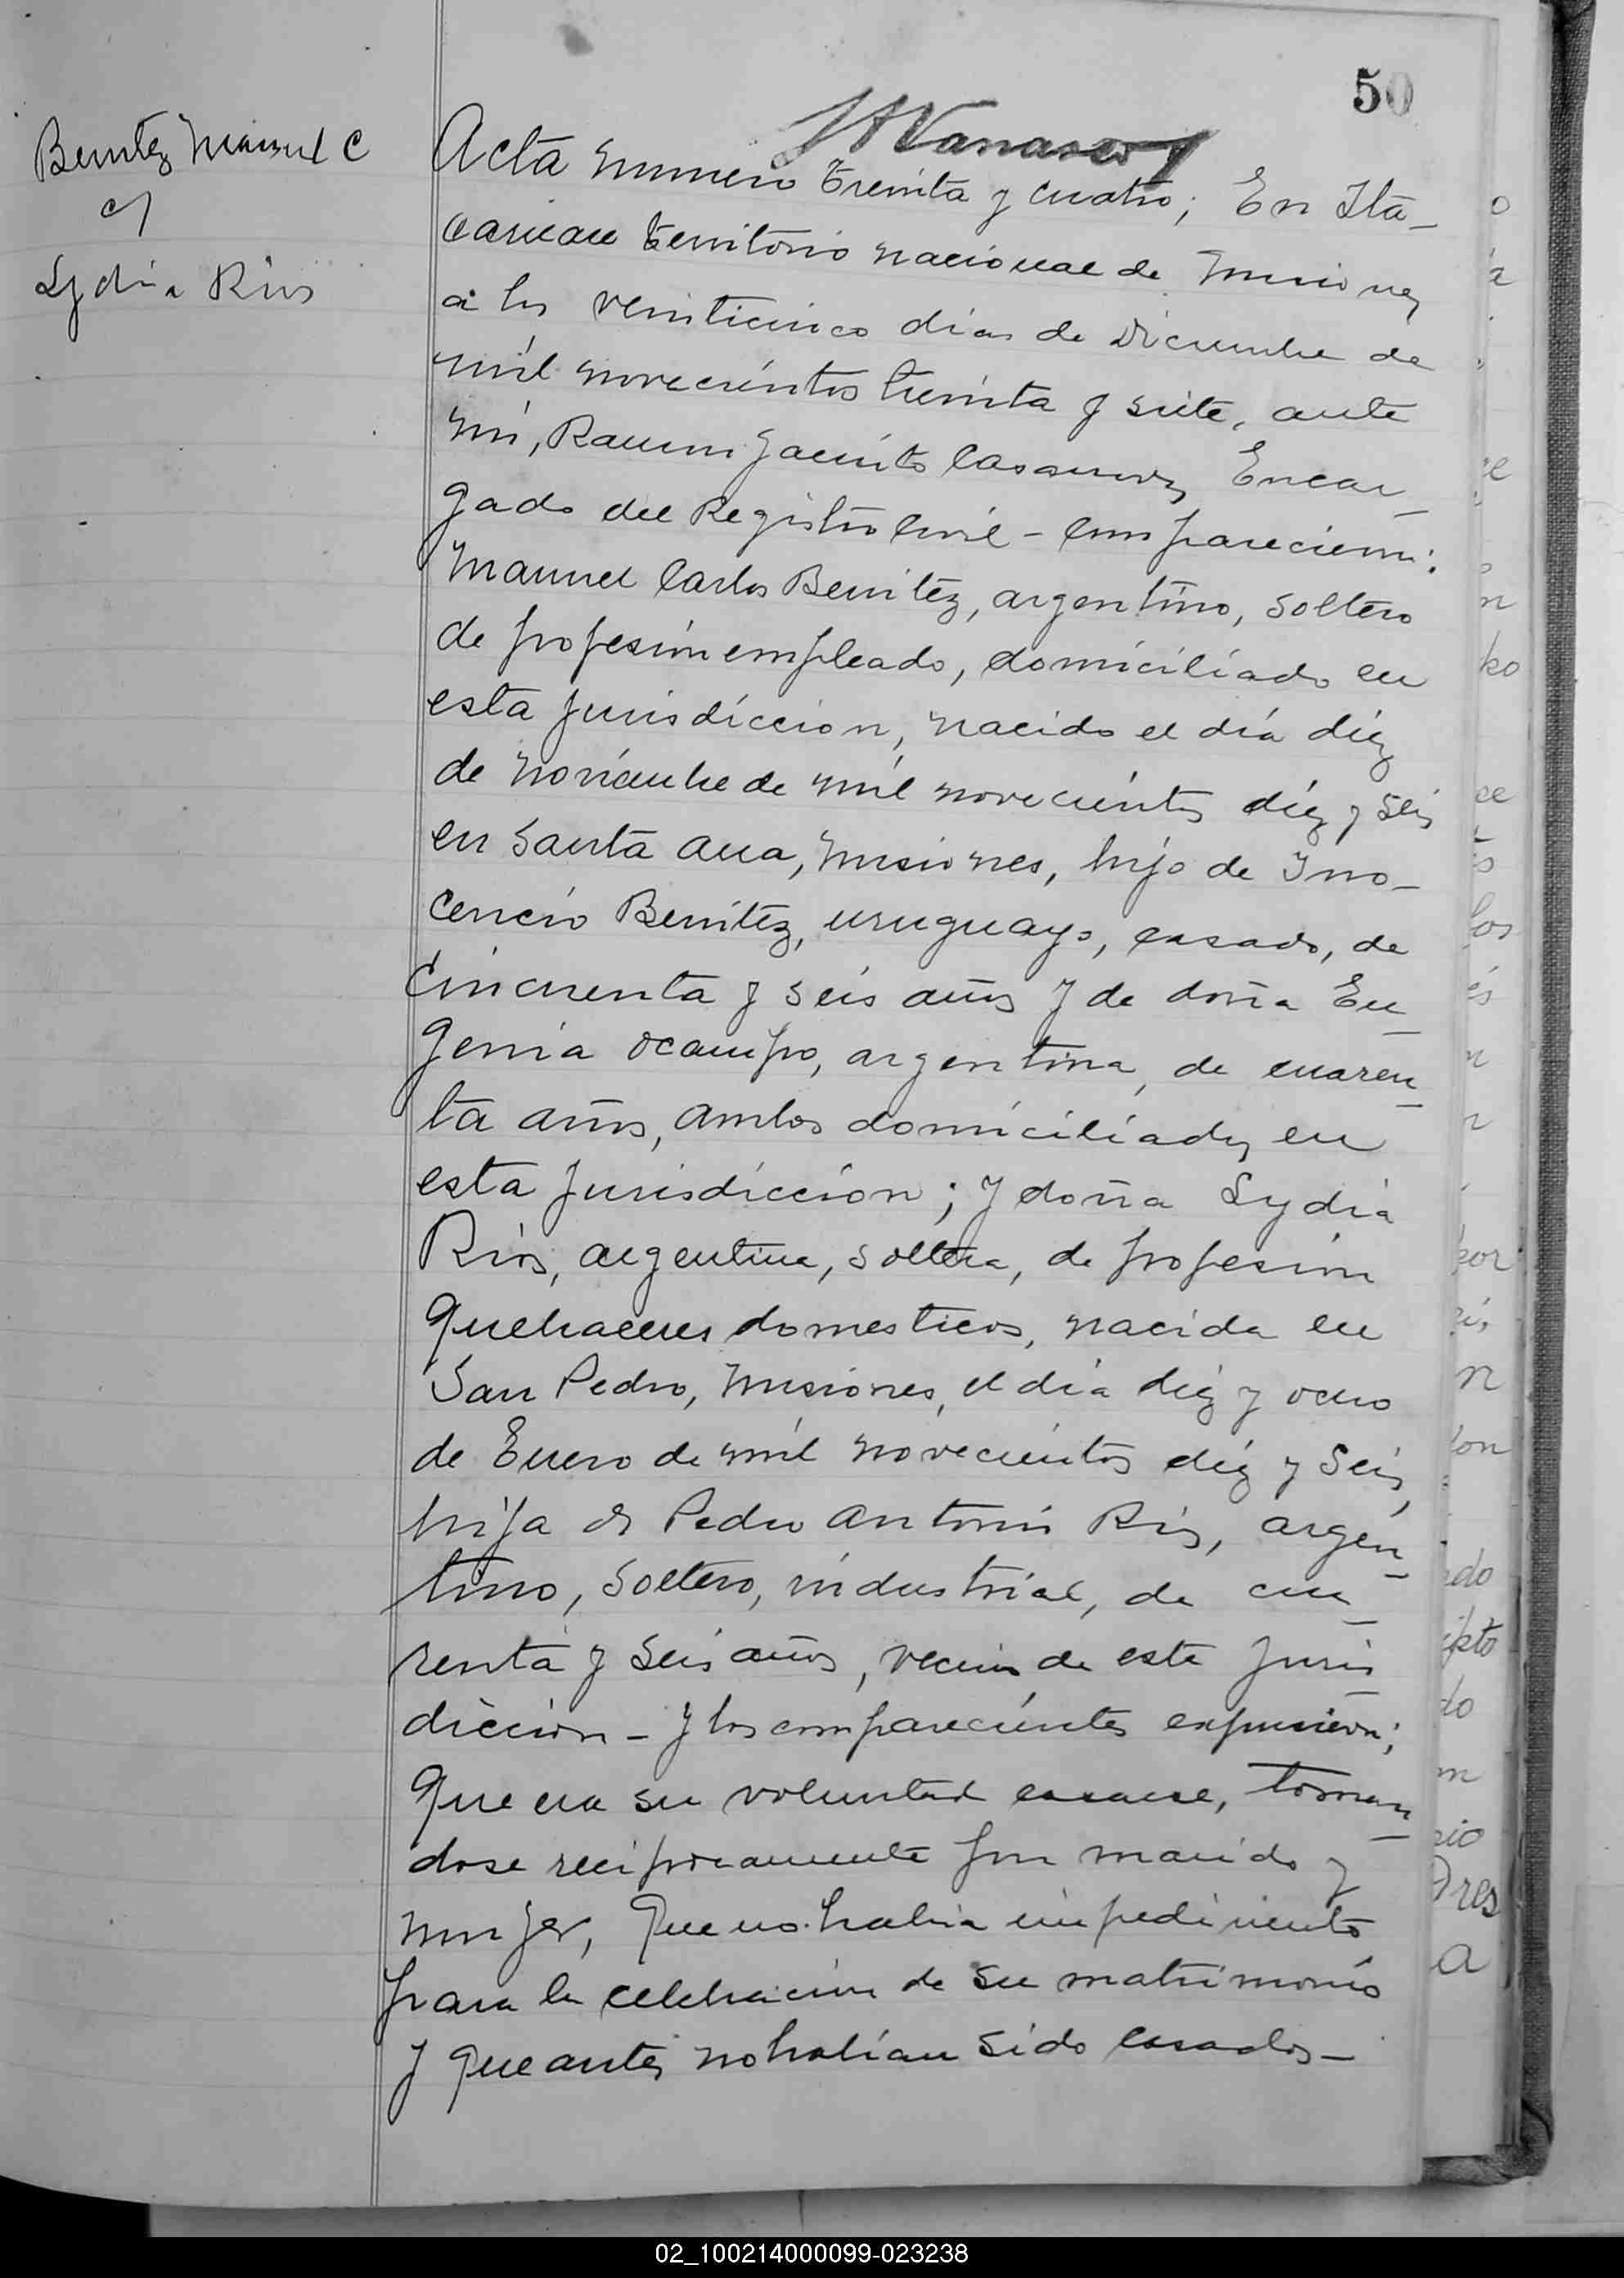 50
Benitez Manuel C
c/
Lydia Rios
Acta numero treinta y cuatro; En Ita-
caruare territorio nacional de Misiones
a los veinticinco dias de Diciembre de
mil novecientos treinta y siete, ante
mi, Ramon Jacinto Casanova, Encar-
gado del Registro Civil - Comparecieron:
Manuel Carlos Benitez, argentino, soltero
de profesión empleado, domiciliado en
esta jurisdiccion, nacido el día diez
de noviembre de mil novecientos diez y seis
en Santa Ana, Misiones, hijo de Ino-
cencio Benitez, uruguayo, casado, de
cincuenta y seis años y de doña Eu-
genia Ocampo, argentina, de cuaren-
ta años, ambos domiciliados en
esta jurisdicción; y doña Lydia
Rios, argentina, soltera, de profesion
quehaceres domesticos, nacida en
San Pedro, Misiones, el día diez y ocho
de Enero de mil novecientos diez y seis,
hija de Pedro Antonio Rios, argen-
tino, soltero, industrial, de cua-
renta y seis años, vecino de esta juris-
dicción - y los comparecientes expusieron;
Que era su voluntad casarse, toman-
dose reciprocamente por marido y
mujer, que no habia impedimento
para la celebracion de su matrimonio
y que antes no habian sido casados -
02_100214000099-023238